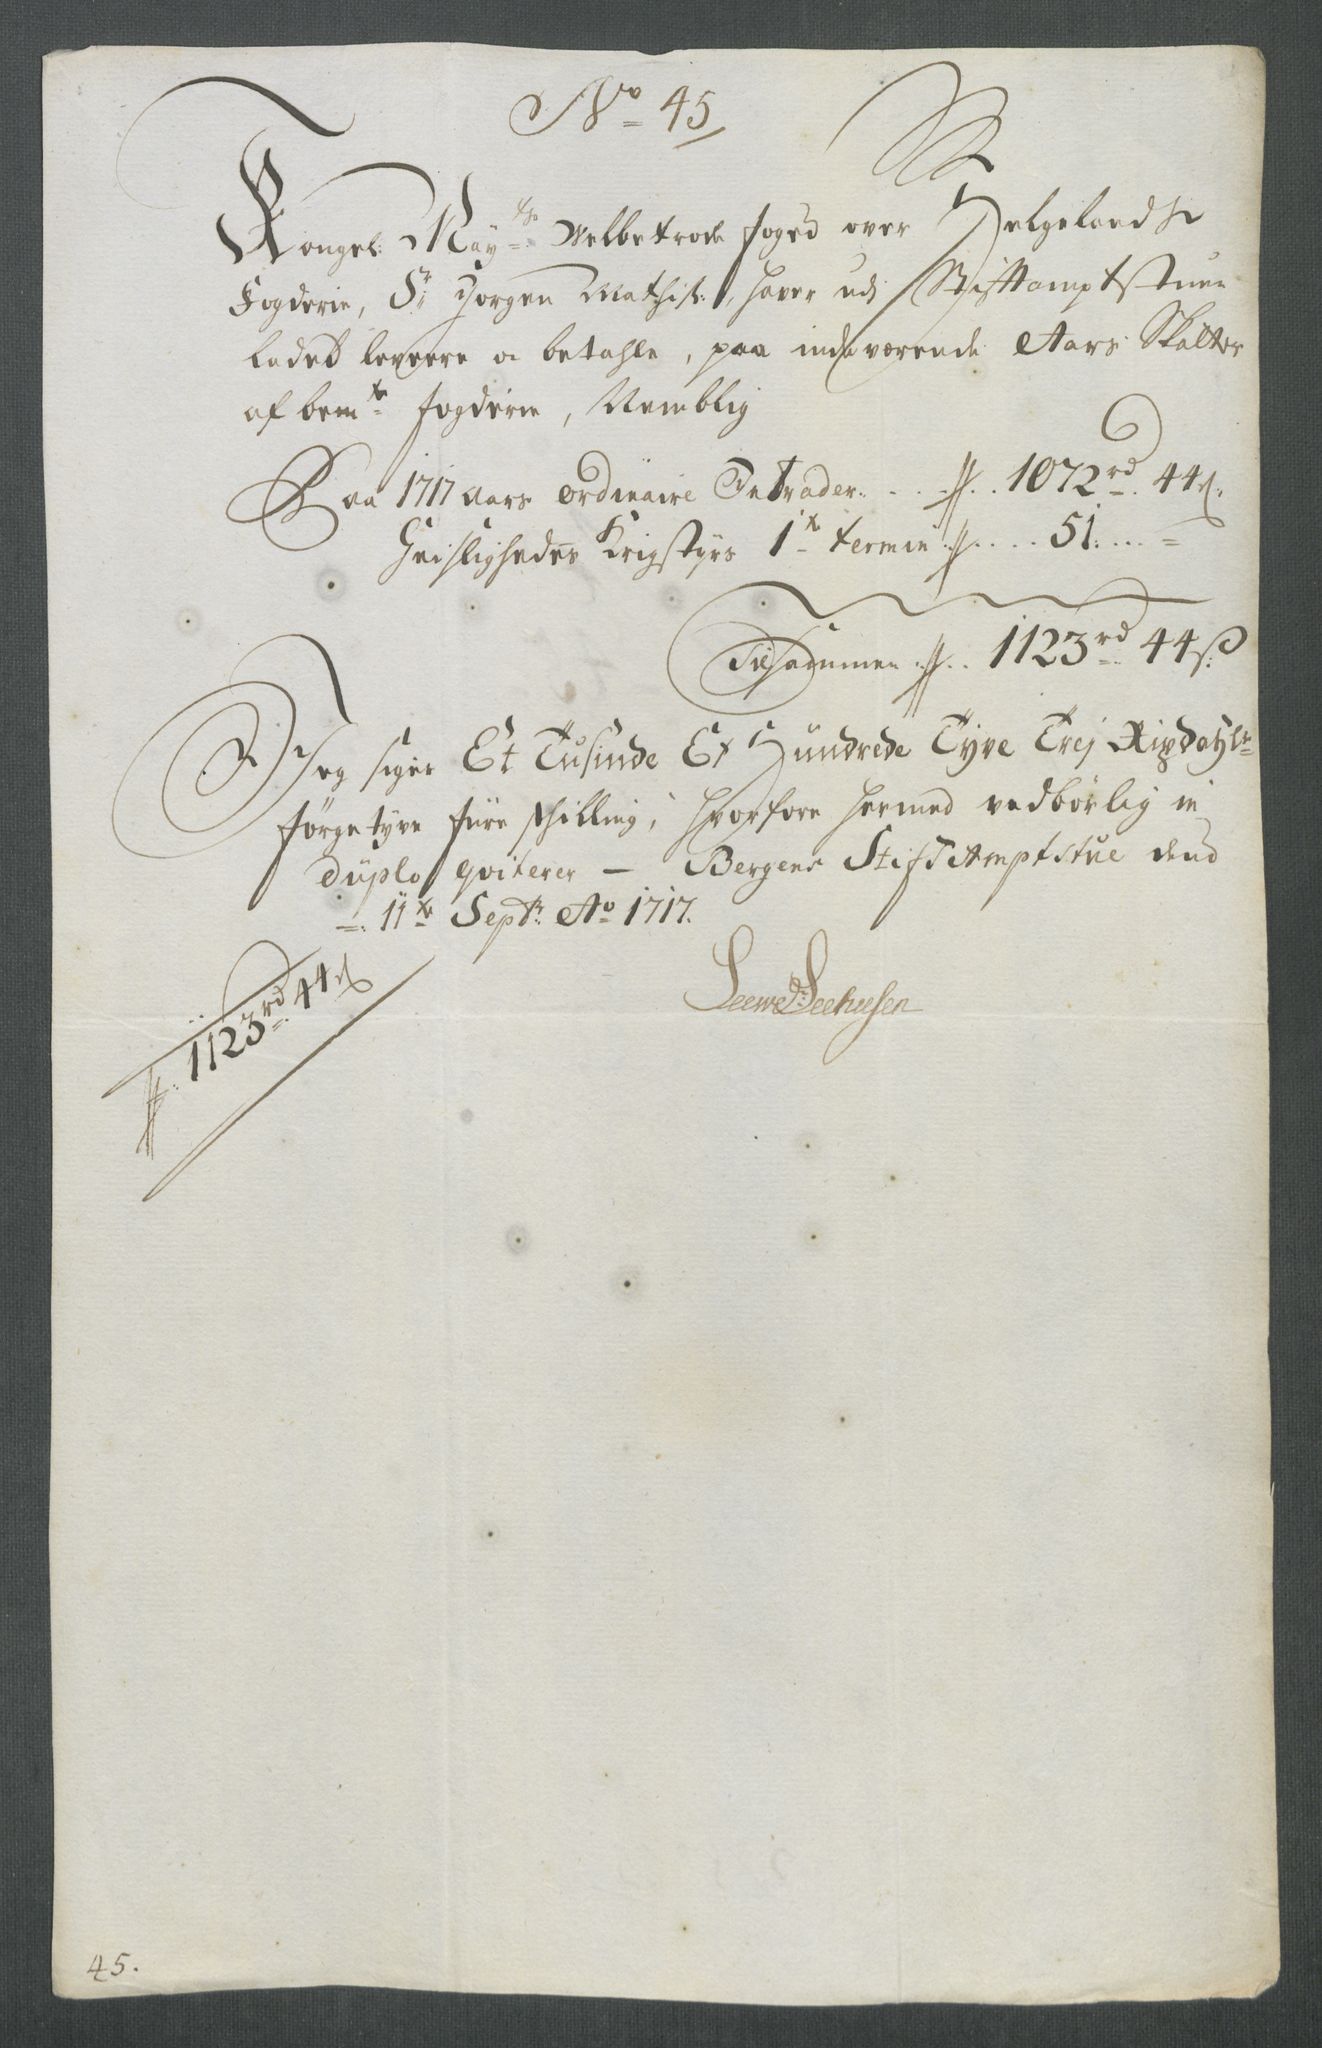 No 45
Kongel: May:ts Welbetrode foged over Helgelands
Fogderie, Sr Jørgen Mathis:, haver udj Stiftamptstuen
ladet levere oc betahle, paa indeværende Aars Skatter
af bem:te fogderie, Nemblig
Paa 1717 Aars ordinaire Intrader: . . . 1072 rd 44 ß:
Geistlighedes Krigstyrs 1te termin . . . . 51: . . . =
Tilsammen . . 1123 rd 44 ß:
Jeg siger Et Tusinde Et Hundrede Tyve Trej Rixdahlr
förgetyve füre skilling, hvorfore hermed vedbörlig in
duplo qviterer — Bergens StiftAmptstue dend
=: 11te Septr: Ao 1717.
Leewe D: Seehusen
1123 rd 44 ß
45.